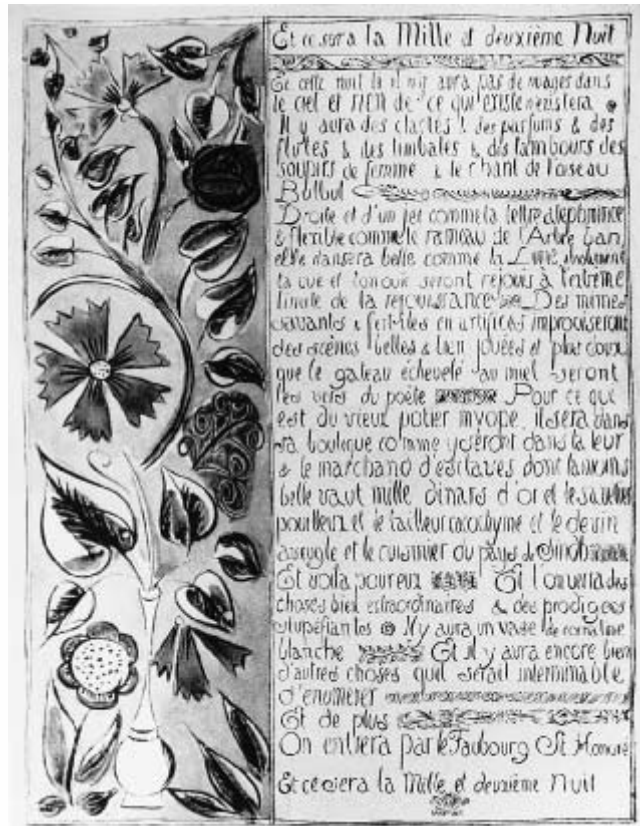 Et ce sera la Mille et deuxième Nuit
Et cette nuit là il n'y aura pas de nuages dans
le ciel et rien de ce qui existe n'existera
Il y aura des clartés & des parfums & des
flutes & des timbales & des tambours des
soupirs de femme & le chant de l'oiseau
Bulbul
Droite et d'un jet comme la lettre aleph mince
& flexible comme le rameau de l'Arbre ban
elle dansera belle comme la Lune absolument
ta vue et ton ouïe seront réjouis à l'extrême
limite de la réjouissance Des mimes
savants & fertiles en artifices improviseront
des scènes belles & bien jouées et plus doux
que le gateau échevelé au miel seront
les vers du poète Pour ce qui
est du vieux potier myope il sera dans
sa boutique comme y seront dans la leur
& le marchand d'esclaves dont la moins
belle vaut mille dinars d'or et le savetier
pouilleux et le tailleur cacochyme et le devin
aveugle et le cuisinier du pays de Sindh
Et voila pour eux Et l'on verra des
choses bien extraordinaires & des prodiges
stupéfiantes Il y aura un vase de cornaline
blanche Et il y aura encore bien
d'autres choses quil serait interminable
d'énumérer
Et de plus
On entrera par le Faubourg St Honoré
Et ce sera la Mille et deuxième Nuit